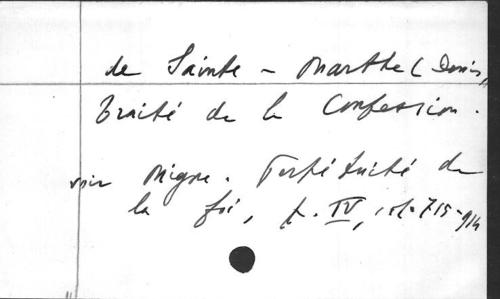 de Sainte - Marthe (Denis,
Traité de la Confession.
voir Migne. Perpétuité de
la foi, t. IV, col. 715-914